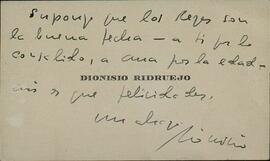 Supongo que los Reyes son
la buena fecha — a ti por lo
consabido, a Ana por la edad
DIONISIO RIDRUEJO
es que felicidades.
un abrazo
Dionisio